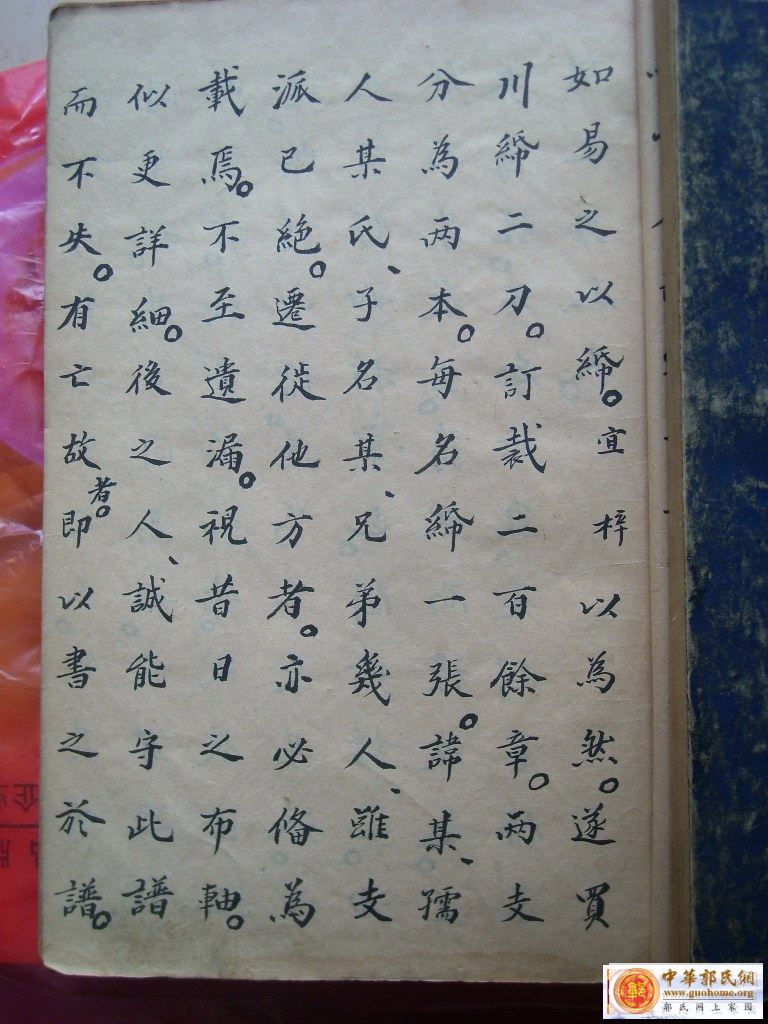 如易之以綈。宜梓以為然。遂買
川綈二刀。訂裁二百餘章。两支
分為两本。每名綈一張。諱某、孺
人某氏、子名某、兄弟幾人、雖支
派已絕。遷徙他方者。亦必俻為
載焉。不至遺漏。視昔日之布軸。
似更詳細。後之人、誠能守此譜
而不失。有亡故者。即以書之於譜。
中華郭氏網
www.guohome.org
郭氏网上家园